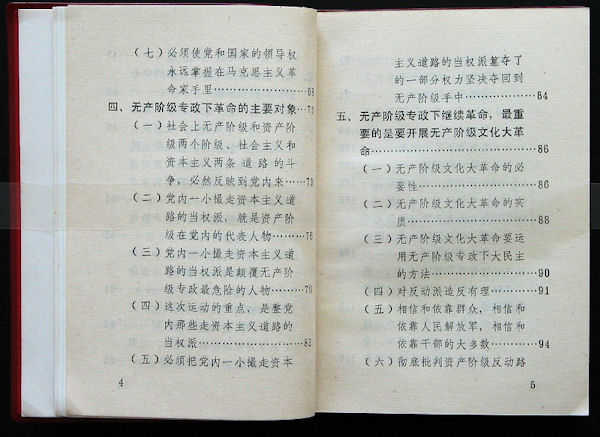 （七）必须使党和国家的领导权
永远掌握在马克思主义革
命家手里……………68
四、无产阶级专政下革命的主要对象…73
（一）社会上无产阶级和资产阶
级两个阶级、社会主义和
资本主义两条道路的斗
争，必然反映到党内来……73
（二）党内一小撮走资本主义道
路的当权派，就是资产阶
级在党内的代表人物……76
（三）党内一小撮走资本主义道
路的当权派是颠覆无产阶
级专政最危险的人物……79
（四）这次运动的重点，是整党
内那些走资本主义道路的
当权派……………………82
（五）必须把党内一小撮走资本
4
主义道路的当权派篡夺了
的一部分权力坚决夺回到
无产阶级手中……………84
五、无产阶级专政下继续革命，最重
要的是要开展无产阶级文化大革
命……………………………86
（一）无产阶级文化大革命的必
要性……………………86
（二）无产阶级文化大革命的实
质………………………88
（三）无产阶级文化大革命要运
用无产阶级专政下大民主
的方法…………………90
（四）对反动派造反有理………91
（五）相信和依靠群众，相信和
依靠人民解放军，相信和
依靠干部的大多数………94
（六）彻底批判资产阶级反动路
5